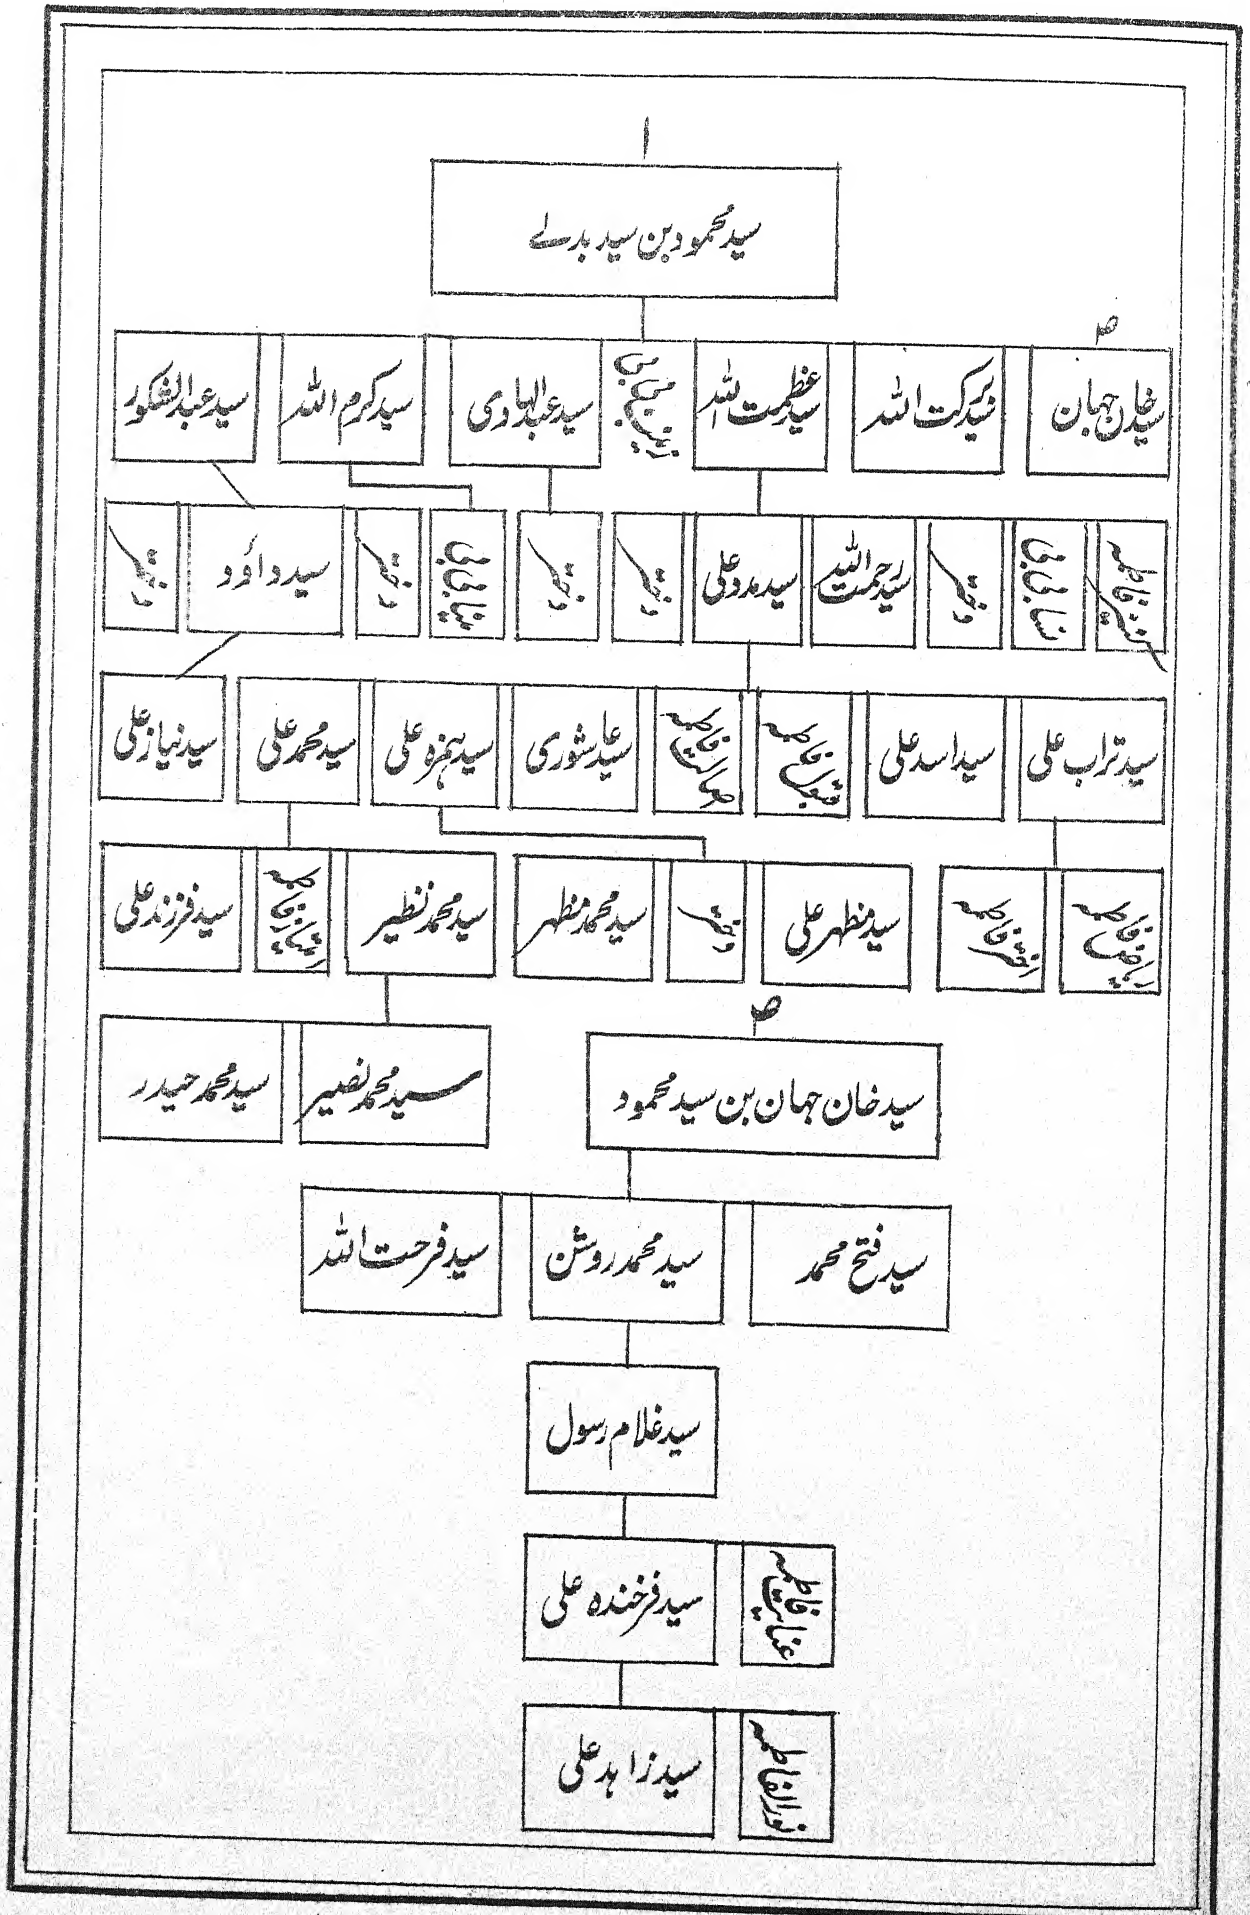 ا
سید محمود بن سید بدلے
ص
سید خان جہان
سید برکت اللہ
سید عظمت اللہ
سید عبدالہادی
سید کرم اللہ
سید عبدالشکور
کنیز فاطمہ
نسا بی بی
دختر
سید رحمت اللہ
سید مدد علی
دختر
دختر
بی بی
دختر
سید داؤد
دختر
سید تراب علی
سید اسد علی
بتول فاطمہ
فاطمہ
سید عاشوری
سید ہمزہ علی
سید محمد علی
سید نیاز علی
فاطمہ
اختر فاطمہ
سید مظہر علی
دختر
سید محمد مظہر
سید محمد نظیر
امتیاز فاطمہ
سید فرزند علی
ص
سید خان جہان بن سید محمود
سید محمد نصیر
سید محمد حیدر
سید فتح محمد
سید محمد روشن
سید فرحت اللہ
سید غلام رسول
عنایت فاطمہ
سید فرخندہ علی
نور الفاطمہ
سید زاہد علی